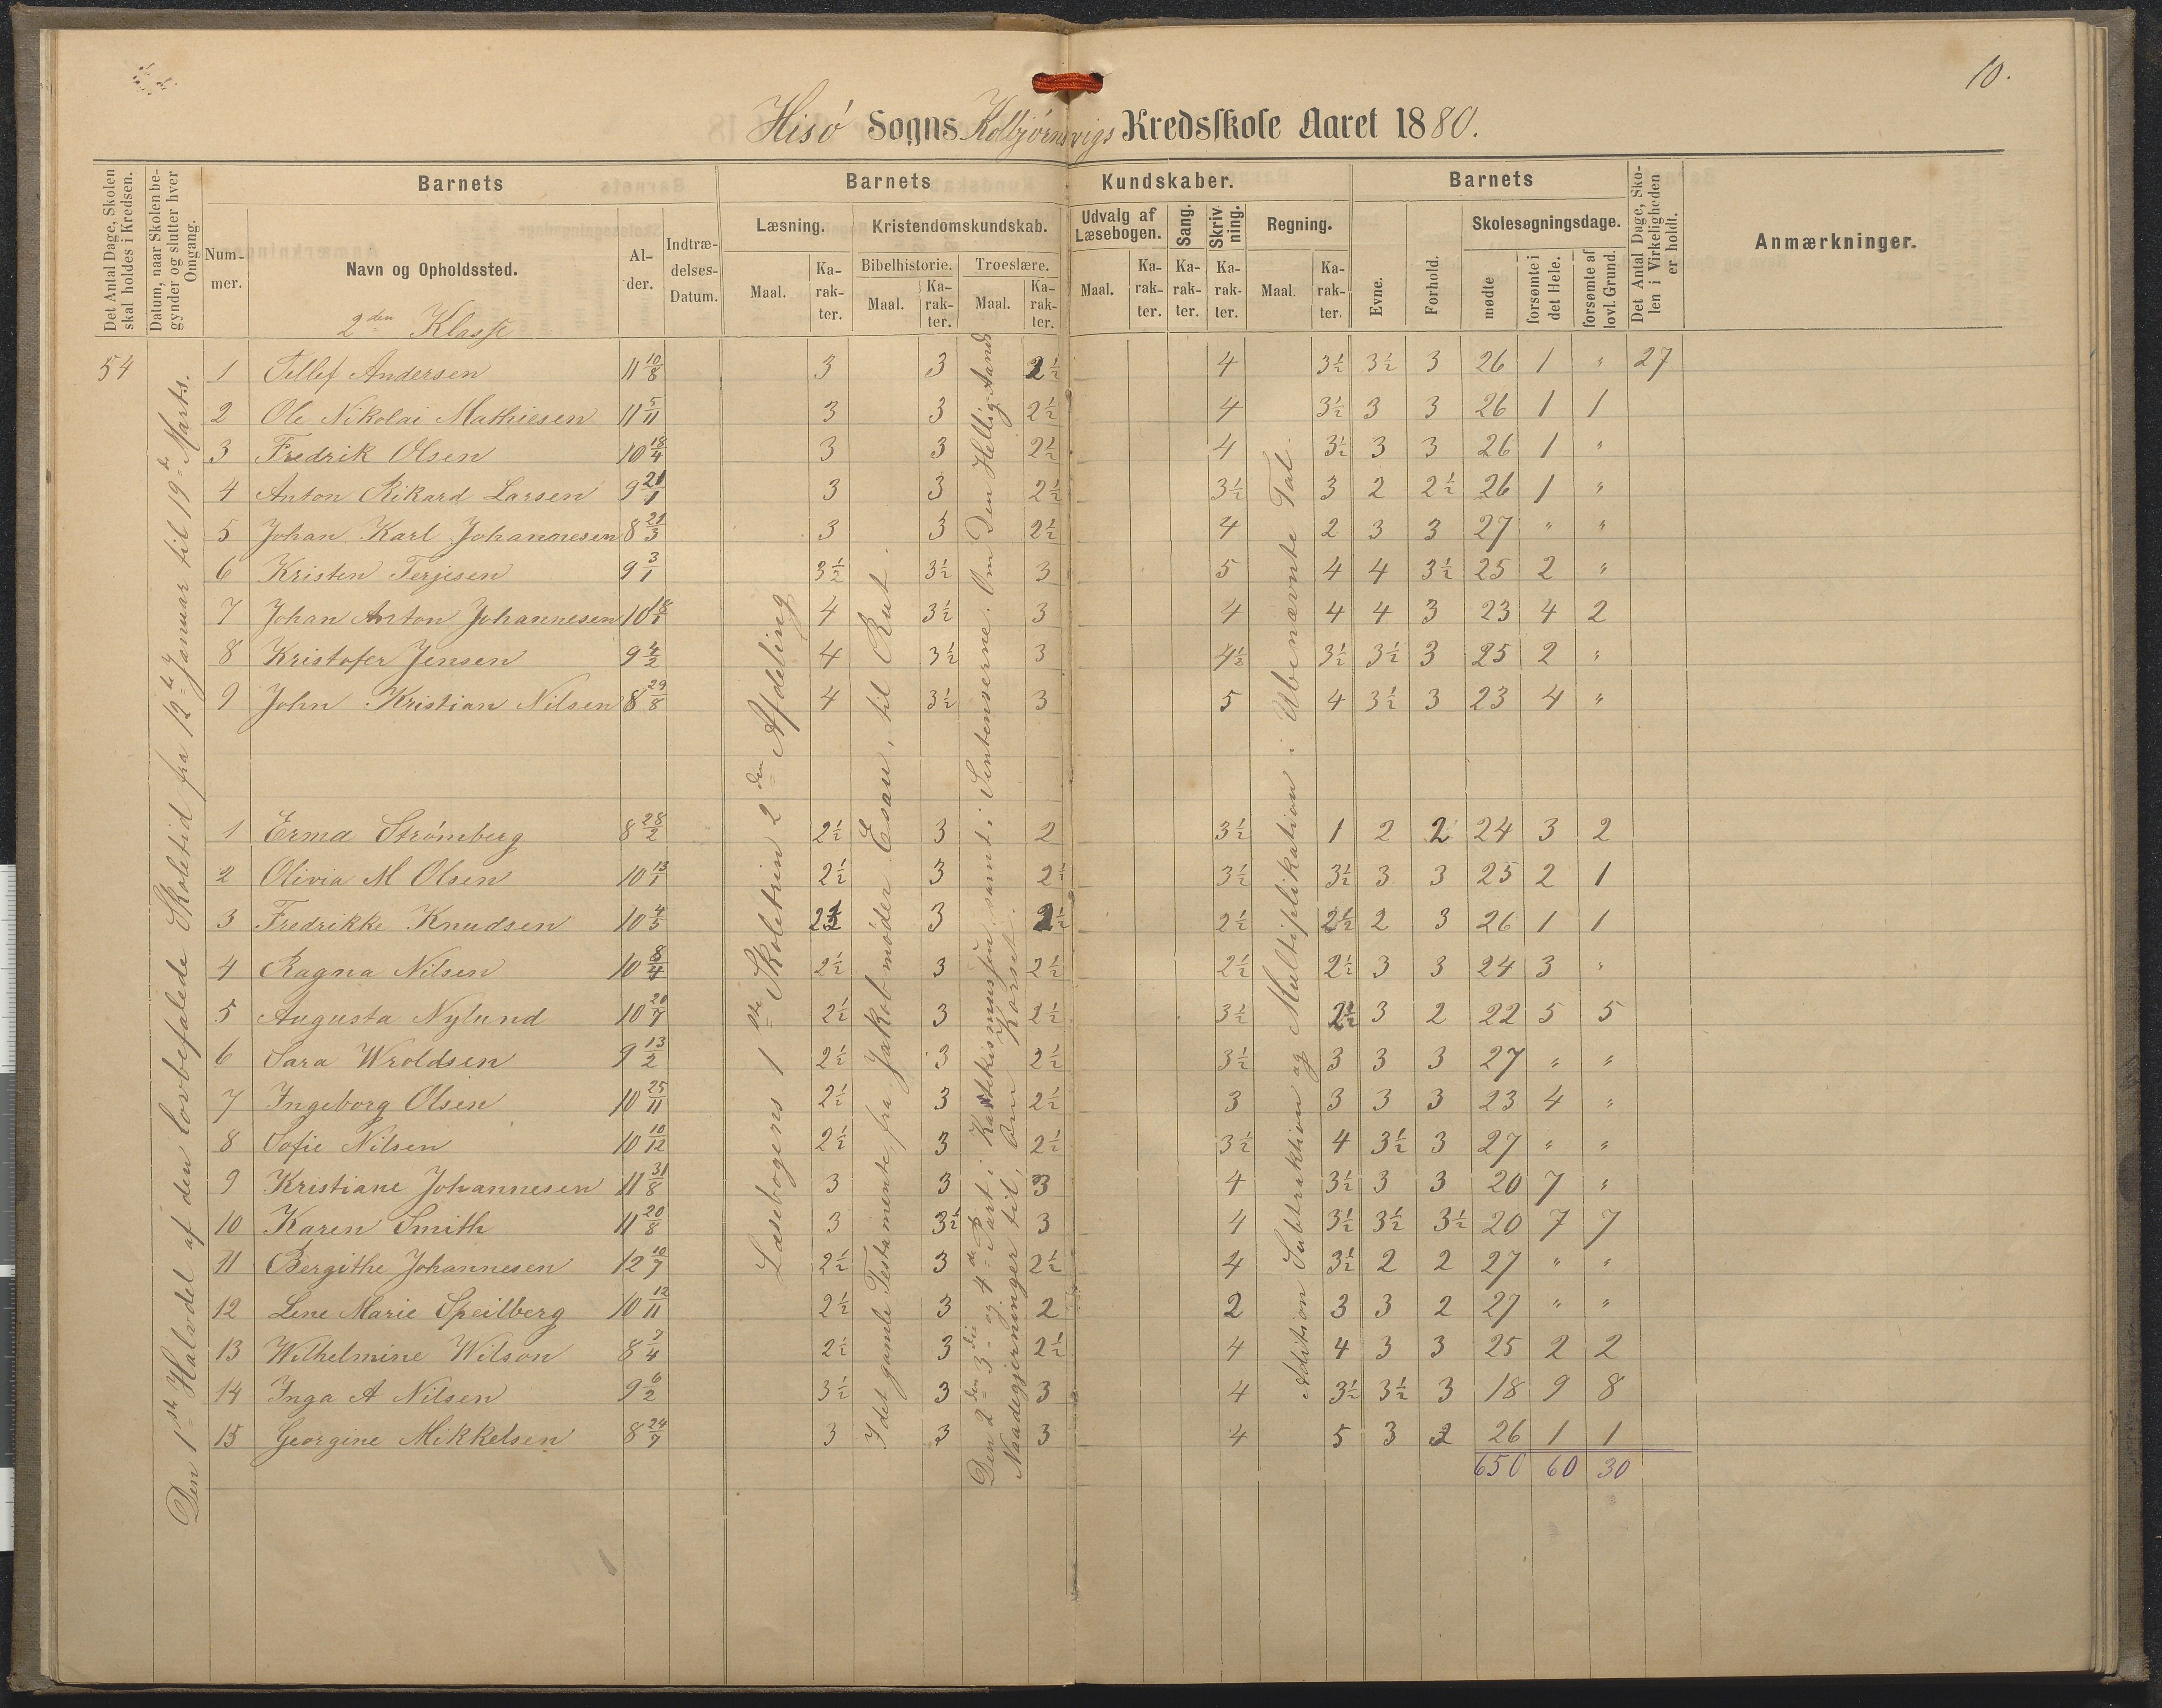 10.
Hisø Sogns Kolbjørnsvigs Kredsskole Aaret 1880.
Det Antal Dage, Skolen skal holdes i Kredsen.
Datum, naar Skolen begynder og slutter hver Omgang.
Barnets
Nummer.
Navn og Opholdssted.
Alder.
Indtrædelses-Datum.
Barnets Kundskaber.
Læsning.
Maal.
Karakter.
Kristendomskundskab.
Bibelhistorie.
Maal.
Karakter.
Troeslære.
Maal.
Karakter.
Udvalg af Læsebogen.
Maal.
Karakter.
Sang.
Karakter.
Skrivning.
Karakter.
Regning.
Maal.
Karakter.
Barnets
Evne.
Forhold.
Skolesøgningsdage.
mødte
forsømte i det Hele.
forsømte af lovl. Grund.
Det Antal Dage, Skolen i Virkeligheden er holdt.
Anmærkninger.
2den Klasse
54
Den 1ste Halvdel af den lovbefalede Skoletid fra 12te Januar til 19de Marts.
Læsebogens 1ste Skoletrin 2den Afdeling
I det gamle Testamente, fra Jakob møder Esau, til Rut.
Den 2den 3die og 4de Part i Katekismussen samt i Sentenserne. Om Den Hellig Aands
Naadegjerninger til, Om Korset.
Adition Subtraktion og Multiplikation i Ubenævnte Tal.
1 Tellef Andersen 11 10/8 3 3 2½ 4 3½ 3½ 3 26 1 " 27
2 Ole Nikolai Mathiesen 11 5/11 3 3 2½ 4 3½ 3 3 26 1 1
3 Fredrik Olsen 10 18/4 3 3 2½ 4 3½ 3 3 26 1 "
4 Anton Rikard Larsen 9 21/1 3 3 2½ 3½ 3 2 2½ 26 1 "
5 Johan Karl Johannesen 8 21/3 3 3 2½ 4 2 3 3 27 " "
6 Kristen Terjesen 9 3/1 3½ 3½ 3 5 4 4 3½ 25 2 "
7 Johan Anton Johannesen 10 4 3½ 3 4 4 4 3 23 4 2
8 Kristofer Jensen 9 4/2 4 3½ 3 4½ 3½ 3½ 3 25 2 "
9 John Kristian Nilsen 8 29/8 4 3½ 3 5 4 3½ 3 23 4 "
1 Erma Strømberg 8 28/2 2½ 3 2 3½ 1 2 2 24 3 2
2 Olivia M Olsen 10 13/1 2½ 3 2½ 3½ 3½ 3 3 25 2 1
3 Fredrikke Knudsen 10 4/5 2½ 3 2½ 2½ 2½ 2 3 26 1 1
4 Ragna Nilsen 10 8/4 2½ 3 2½ 2½ 2½ 3 3 24 3 "
5 Augusta Nylund 10 20/7 2½ 3 2½ 3½ 2½ 3 2 22 5 5
6 Sara Wroldsen 9 13/2 2½ 3 2½ 3½ 3 3 3 27 " "
7 Ingeborg Olsen 10 25/11 2½ 3 2½ 3 3 3 3 23 4 "
8 Sofie Nilsen 10 10/12 2½ 3 2½ 3½ 4 3½ 3 27 " "
9 Kristiane Johannesen 11 31/8 3 3 3 4 3½ 3 3 20 7 "
10 Karen Smith 11 20/8 3 3½ 3 4 3½ 3½ 3½ 20 7 7
11 Bergithe Johannesen 12 10/7 2½ 3 2½ 4 3½ 2 2 27 " "
12 Lene Marie Speilberg 10 12/11 2½ 3 2 2 3 3 2 27 " "
13 Wilhelmine Wilson 8 7/4 2½ 3 2½ 4 4 3 3 25 2 2
14 Inga A Nilsen 9 6/2 3½ 3 3 4 3½ 3½ 3 18 9 8
15 Georgine Mikkelsen 8 24/7 3 3 3 4 5 3 2 26 1 1
650 60 30